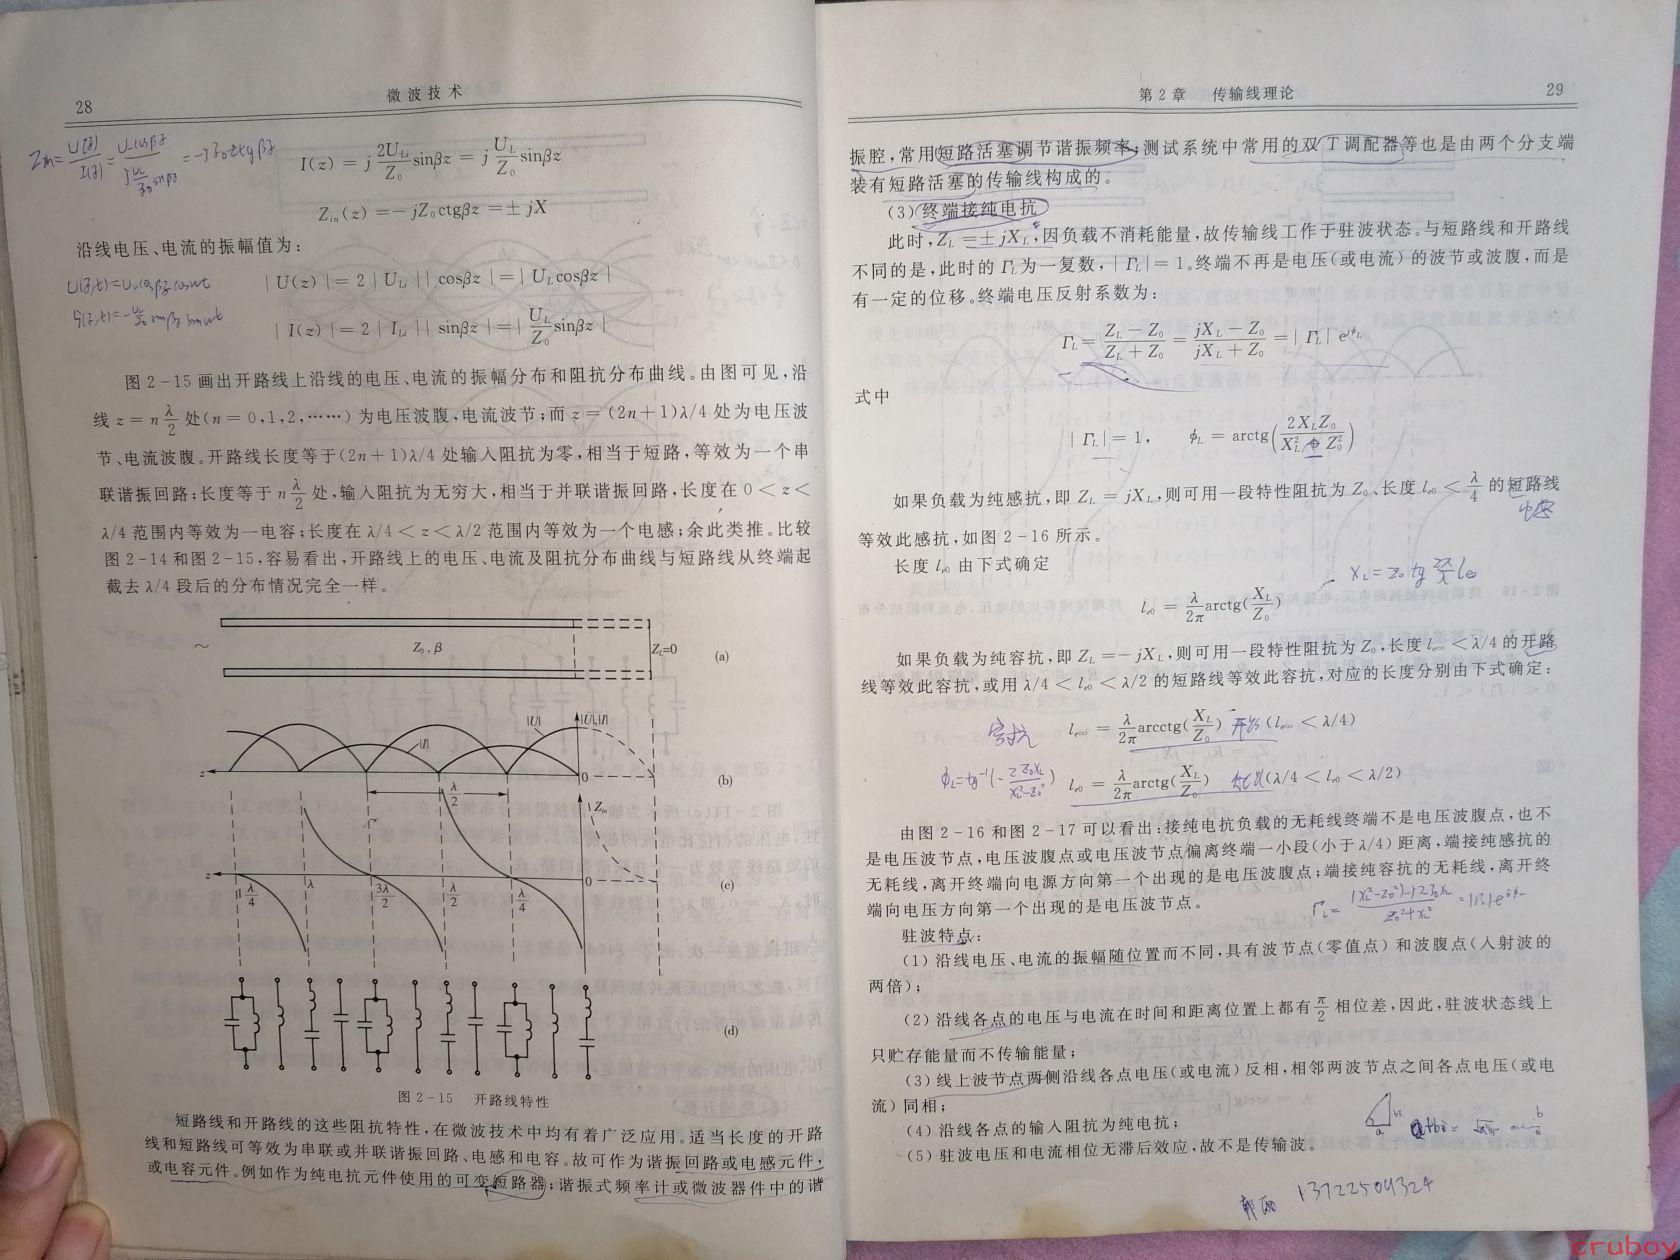 28
微波技术
I(z) = j 2U_Li/Z₀ sinβz = j U_L/Z₀ sinβz
Z_in(z) = − jZ₀ctgβz = ± jX
沿线电压、电流的振幅值为:
| U(z) | = 2 | U_Li || cosβz | = | U_L cosβz |
| I(z) | = 2 | I_Li || sinβz | = | U_L/Z₀ sinβz |
图 2-15 画出开路线上沿线的电压、电流的振幅分布和阻抗分布曲线。由图可见,沿
线 z = n λ/2 处(n = 0,1,2,……) 为电压波腹,电流波节;而 z = (2n+1)λ/4 处为电压波
节、电流波腹。开路线长度等于(2n+1)λ/4 处输入阻抗为零,相当于短路,等效为一个串
联谐振回路;长度等于 n λ/2 处,输入阻抗为无穷大,相当于并联谐振回路,长度在 0 < z <
λ/4 范围内等效为一电容;长度在 λ/4 < z < λ/2 范围内等效为一个电感;余此类推。比较
图 2-14 和图 2-15,容易看出,开路线上的电压、电流及阻抗分布曲线与短路线从终端起
截去 λ/4 段后的分布情况完全一样。
~ Z₀,β Z_L=0 (a)
|U| |I| |U|,|I|
z 0 (b)
λ/2
Z_in
z 0 (c)
λ/4 λ 3λ/2 λ/2 λ/4
(d)
图 2-15 开路线特性
短路线和开路线的这些阻抗特性,在微波技术中均有着广泛应用。适当长度的开路
线和短路线可等效为串联或并联谐振回路、电感和电容。故可作为谐振回路或电感元件,
或电容元件。例如作为纯电抗元件使用的可变短路器;谐振式频率计或微波器件中的谐
第 2 章 传输线理论
29
振腔,常用短路活塞调节谐振频率;测试系统中常用的双 T 调配器等也是由两个分支端
装有短路活塞的传输线构成的。
(3) 终端接纯电抗
此时,Z_L = ± jX_L,因负载不消耗能量,故传输线工作于驻波状态。与短路线和开路线
不同的是,此时的 Γ_L 为一复数,| Γ_L | = 1。终端不再是电压(或电流) 的波节或波腹,而是
有一定的位移。终端电压反射系数为:
Γ_L = (Z_L − Z₀)/(Z_L + Z₀) = (jX_L − Z₀)/(jX_L + Z₀) = | Γ_L | e^{jφ_L}
式中
| Γ_L | = 1, φ_L = arctg(2X_LZ₀/(X_L² + Z₀²))
如果负载为纯感抗,即 Z_L = jX_L,则可用一段特性阻抗为 Z₀、长度 l_e0 < λ/4 的短路线
等效此感抗,如图 2-16 所示。
长度 l_e0 由下式确定
X_L = Z₀ tg 2π/λ l_e0
l_e0 = λ/2π arctg(X_L/Z₀)
如果负载为纯容抗,即 Z_L = − jX_L,则可用一段特性阻抗为 Z₀,长度 l_e∞ < λ/4 的开路
线等效此容抗,或用 λ/4 < l_e0 < λ/2 的短路线等效此容抗,对应的长度分别由下式确定:
容抗 l_e∞ = λ/2π arcctg(X_L/Z₀) 开路 (l_e∞ < λ/4)
l_e0 = λ/2π arctg(X_L/Z₀) (λ/4 < l_e0 < λ/2)
由图 2-16 和图 2-17 可以看出:接纯电抗负载的无耗线终端不是电压波腹点,也不
是电压波节点,电压波腹点或电压波节点偏离终端一小段(小于 λ/4) 距离,端接纯感抗的
无耗线,离开终端向电源方向第一个出现的是电压波腹点;端接纯容抗的无耗线,离开终
端向电压方向第一个出现的是电压波节点。
驻波特点:
(1) 沿线电压、电流的振幅随位置而不同,具有波节点(零值点) 和波腹点(入射波的
两倍);
(2) 沿线各点的电压与电流在时间和距离位置上都有 π/2 相位差,因此,驻波状态线上
只贮存能量而不传输能量;
(3) 线上波节点两侧沿线各点电压(或电流) 反相,相邻两波节点之间各点电压(或电
流) 同相;
(4) 沿线各点的输入阻抗为纯电抗;
(5) 驻波电压和电流相位无滞后效应,故不是传输波。
cruboy